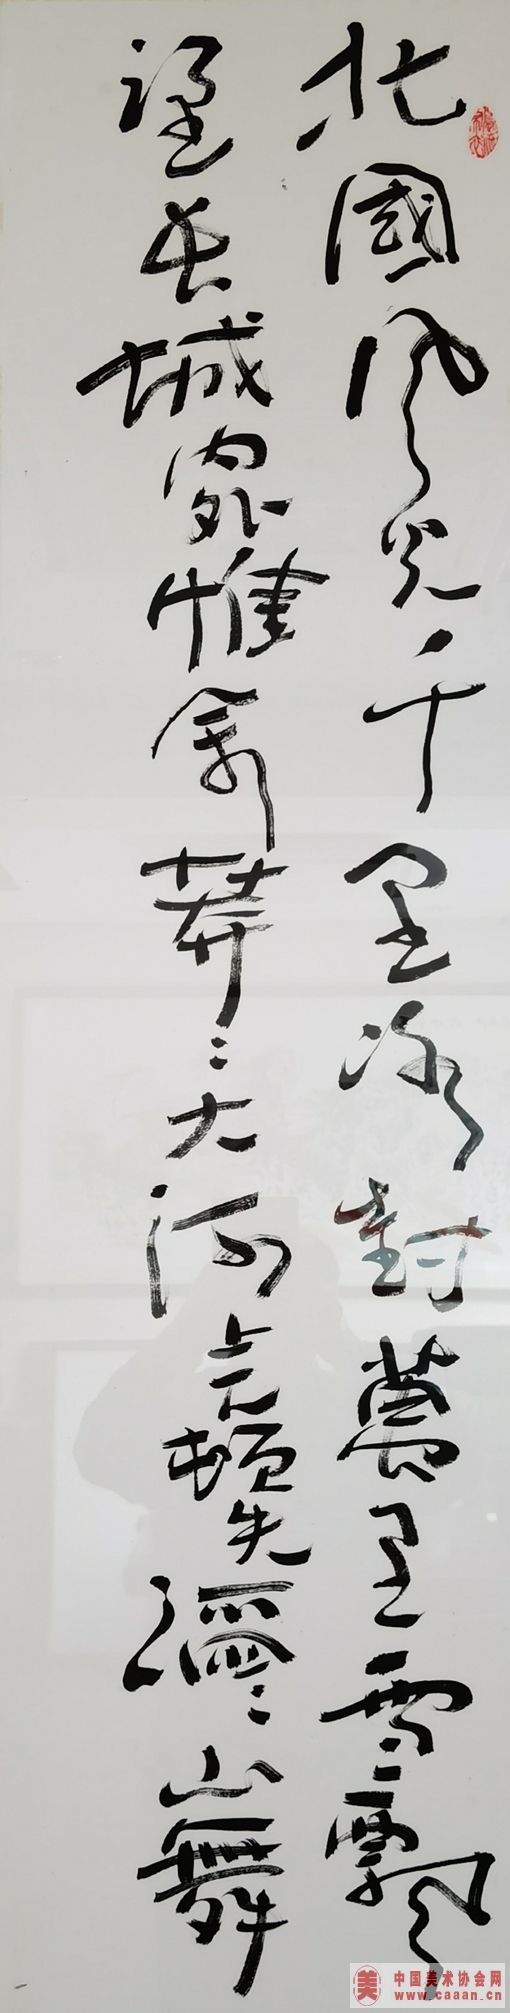 北國風光千里冰封萬里雪飄
望長城内外惟余莽々大河上下頓失滔々山舞
美 中国美术协会网
www.caaan.cn